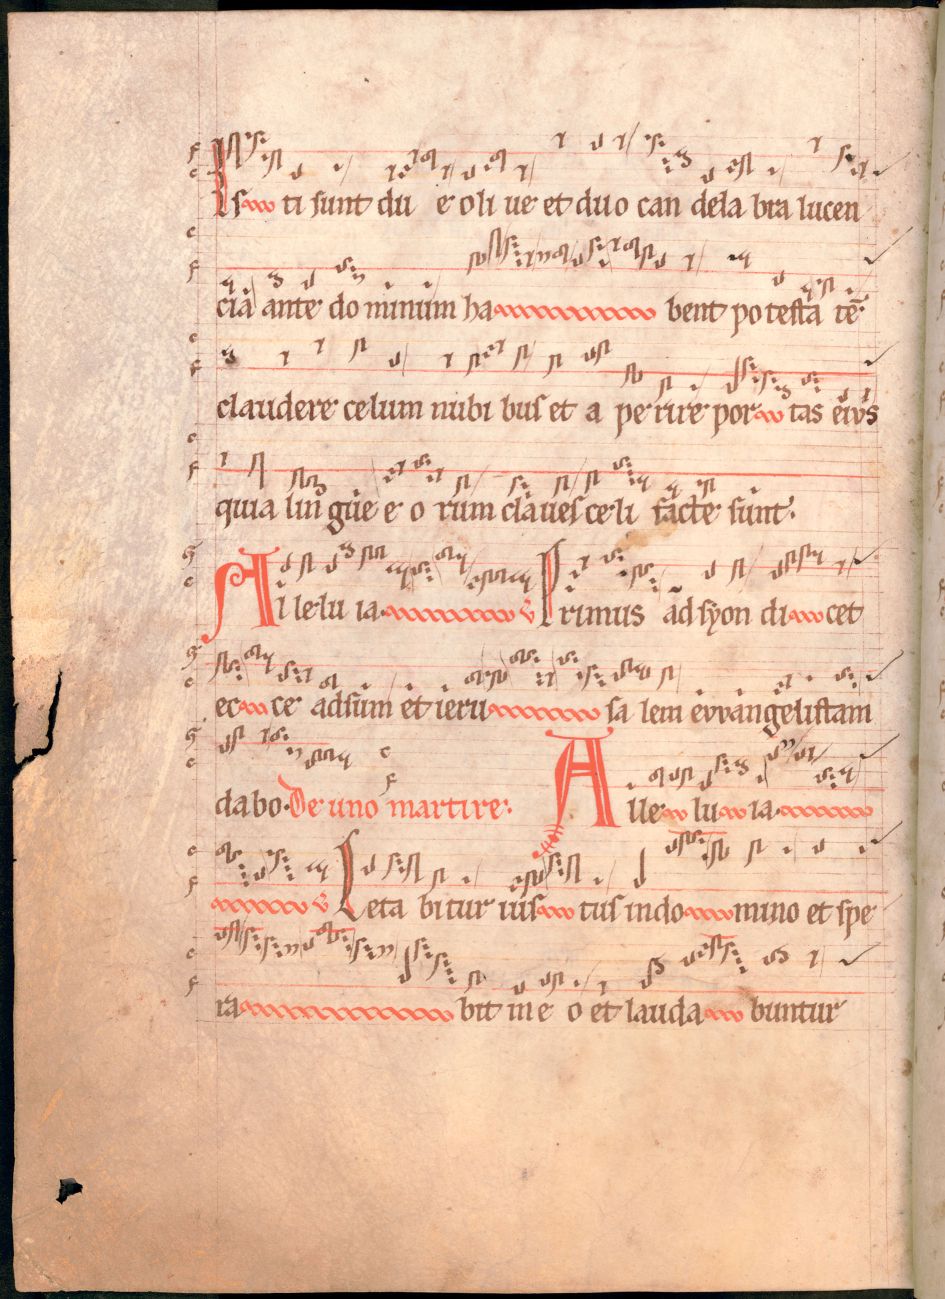 Isti sunt du e oli ue et duo can dela bra lucen
cia ante do minum ha bent po testa tē
claudere celum nubi bus et a pe rire por tas eius
quia lin gue e o rum claues ce li facte sunt.
Al le lu ia. v̄ Primus ad syon di cet
ec ce adsum et ieru sa lem evvangelistam
dabo. De uno martire. Alle lu ia.
v̄ Leta bitur ius tus in do mino et spe
ra bit in e o et lauda buntur